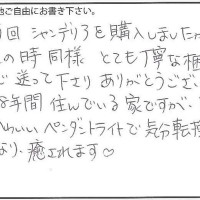 他ご自由にお書き下さい。
回 シャンデリアを購入しました
の時 同様 とても丁寧な梱
ご送って下さり ありがとうござい
8年間 住んでいる 家ですが、
かわいい ペンダントライトで 気分転換
なり、癒されます♡